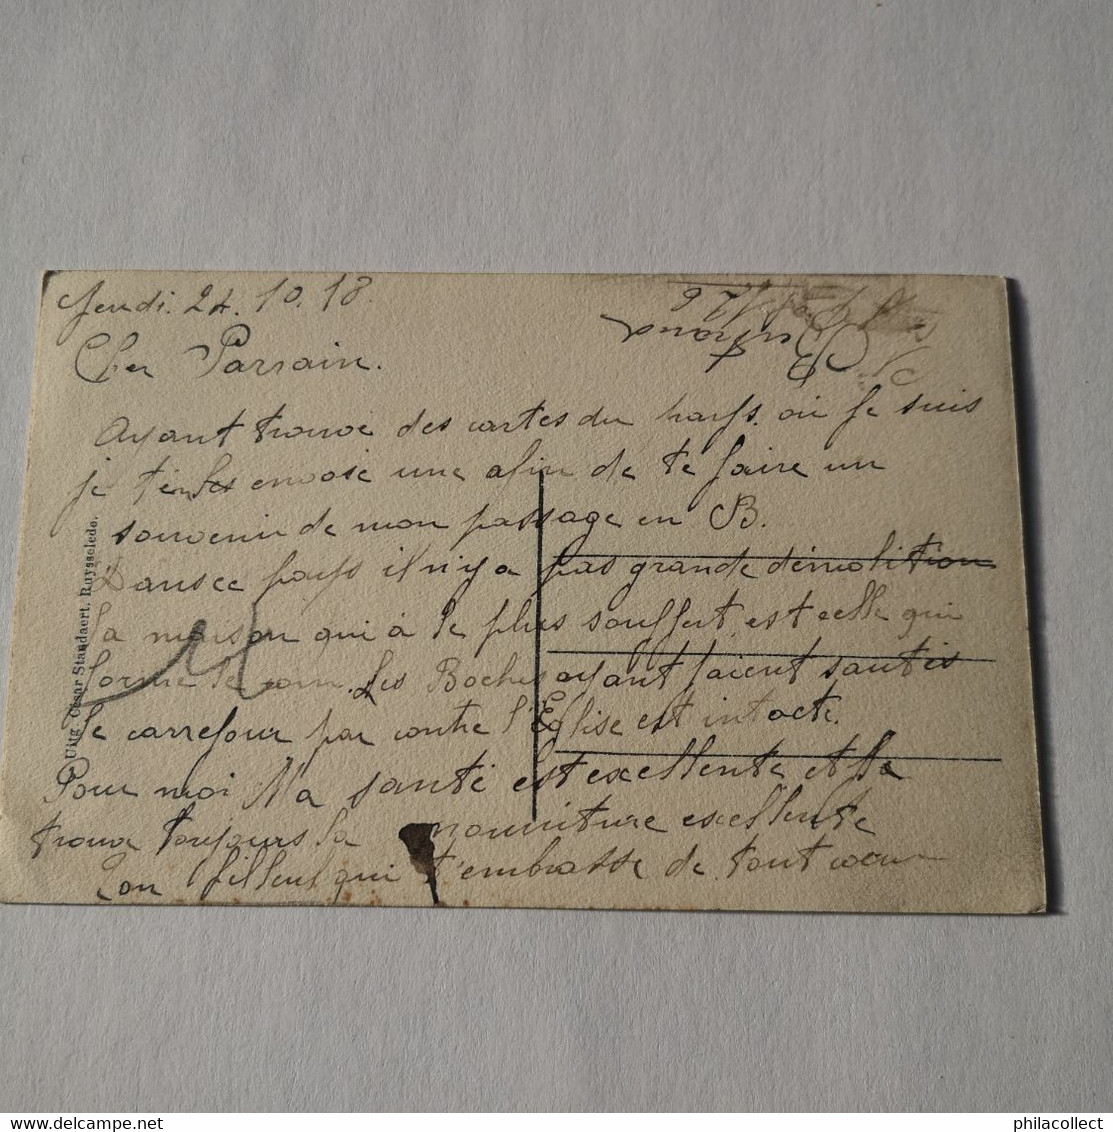 Jeudi. 24. 10. 18.
Cher Parrain.
Ayant trouvé des cartes du pays. où je suis
je t'en envoie une afin de te faire un
souvenir de mon passage en B.
Dans ce pays il n'y a pas grande démolition
la maison qui a le plus souffert est celle qui
forme le coin. Les Boches ayant faient sautis
le carrefour par contre l'Eglise est intacte.
Pour moi Ma santé est excellente et je
trouve toujours la nourriture excellente
Ton filleul qui t'embrasse de tout cœur
Uitg. César Standaert, Ruysselede.
philacollect